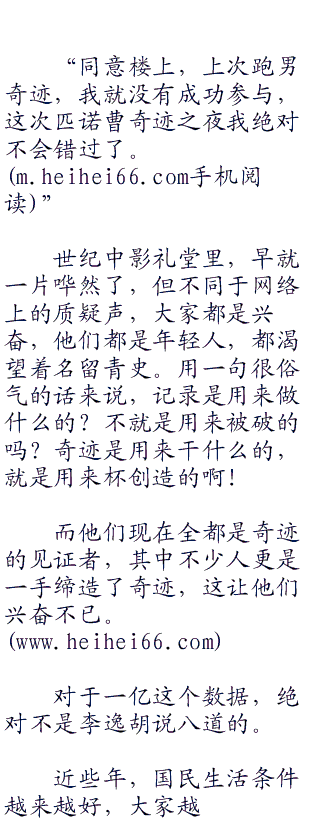 “同意楼上，上次跑男
奇迹，我就没有成功参与，
这次匹诺曹奇迹之夜我绝对
不会错过了。
(m.heihei66.com手机阅
读)”
世纪中影礼堂里，早就
一片哗然了，但不同于网络
上的质疑声，大家都是兴
奋，他们都是年轻人，都渴
望着名留青史。用一句很俗
气的话来说，记录是用来做
什么的？不就是用来被破的
吗？奇迹是用来干什么的，
就是用来杯创造的啊！
而他们现在全都是奇迹
的见证者，其中不少人更是
一手缔造了奇迹，这让他们
兴奋不已。
(www.heihei66.com)
对于一亿这个数据，绝
对不是李逸胡说八道的。
近些年，国民生活条件
越来越好，大家越